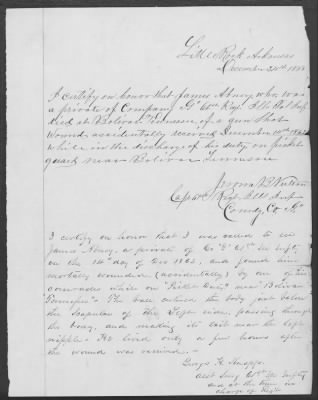 Little Rock Arkansas
December 24th 1863
I certify on honor that James Alney who was
a private of Company "G" 61st Regt Ills Vol Inf
died at Bolivar Tennessee, of a gun Shot
wound, accidentally received December 14th 1862
while in the discharge of his duty on picket
guard near Bolivar Tennessee
Jerome B Nulton
Capt 61st Regt Ills Inf
Comdg Co G
I certify on honor that I was called to see
James Alney, a private of Co "G" 61st Ills Infty
on the 14th day of Dec 1862, and found him
mortally wounded (accidentally) by one of his
comrades while on "Picket Duty" near "Bolivar
Tennessee". The ball entered the body just below
the scapular of the left side, passing through
the body, and making its exit near the left
nipple. He lived only a few hours after
the wound was received.
Asst Surg 61st Ills Infty
and at the time in
charge of Regt